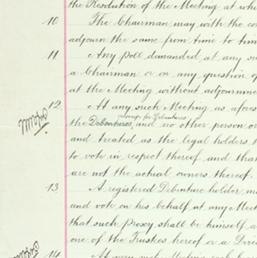 the Resolution of the Meeting at wh
10 The Chairman may with the con
adjourn the same from time to tim
11 Any poll demanded at any su
a Chairman or on any question of
at the Meeting without adjournmen
12 At any such Meeting as afores
the Debentures and no other person or
and treated as the legal holders
to vote in respect thereof and that
are not the actual owners thereof.
13 A registered Debenture holder m
and vote on his behalf at any Meet
that such proxy shall be himself a
one of the Trustees hereof or a Direc
14